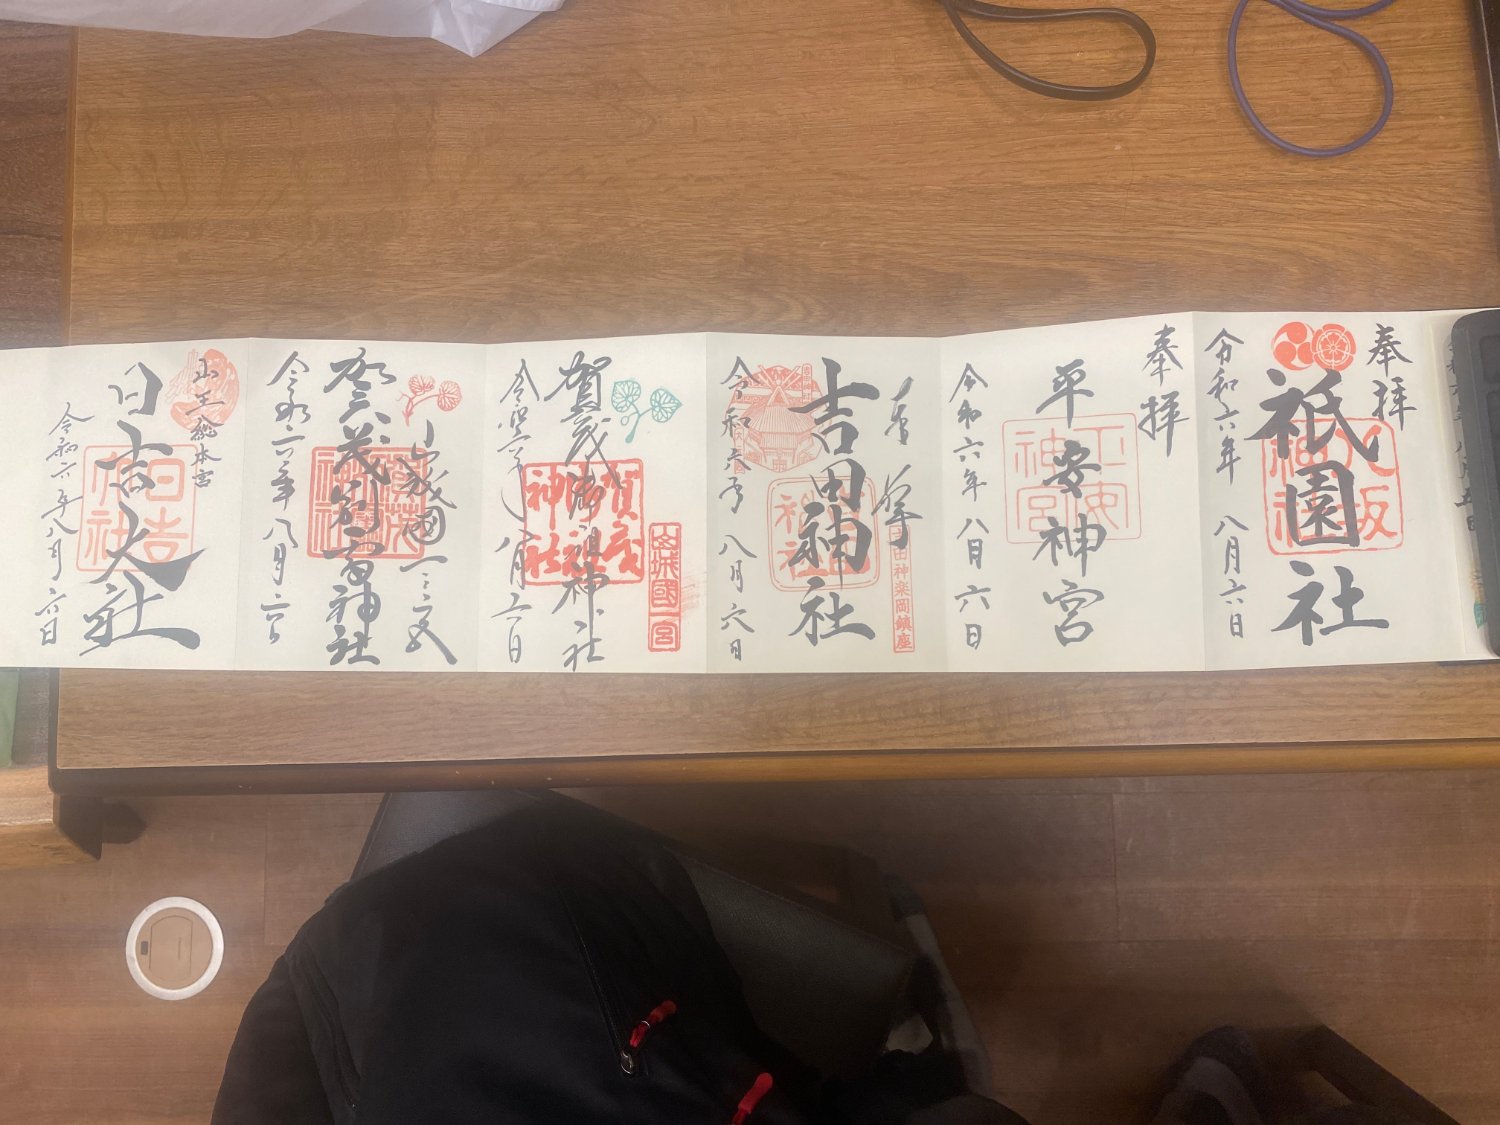 奉拝
八坂神社
祇園社
令和六年 八月六日
奉拝
平安神宮
平安神宮
令和六年 八月六日
奉拝
吉田神楽岡鎮座
吉田神社
令和六年 八月六日
山城國一宮
賀茂御祖神社
賀茂御祖神社
令和六年 八月六日
山城國一之宮
賀茂別雷神社
令和六年八月六日
山王總本宮
日吉大社
日吉大社
令和六年八月六日